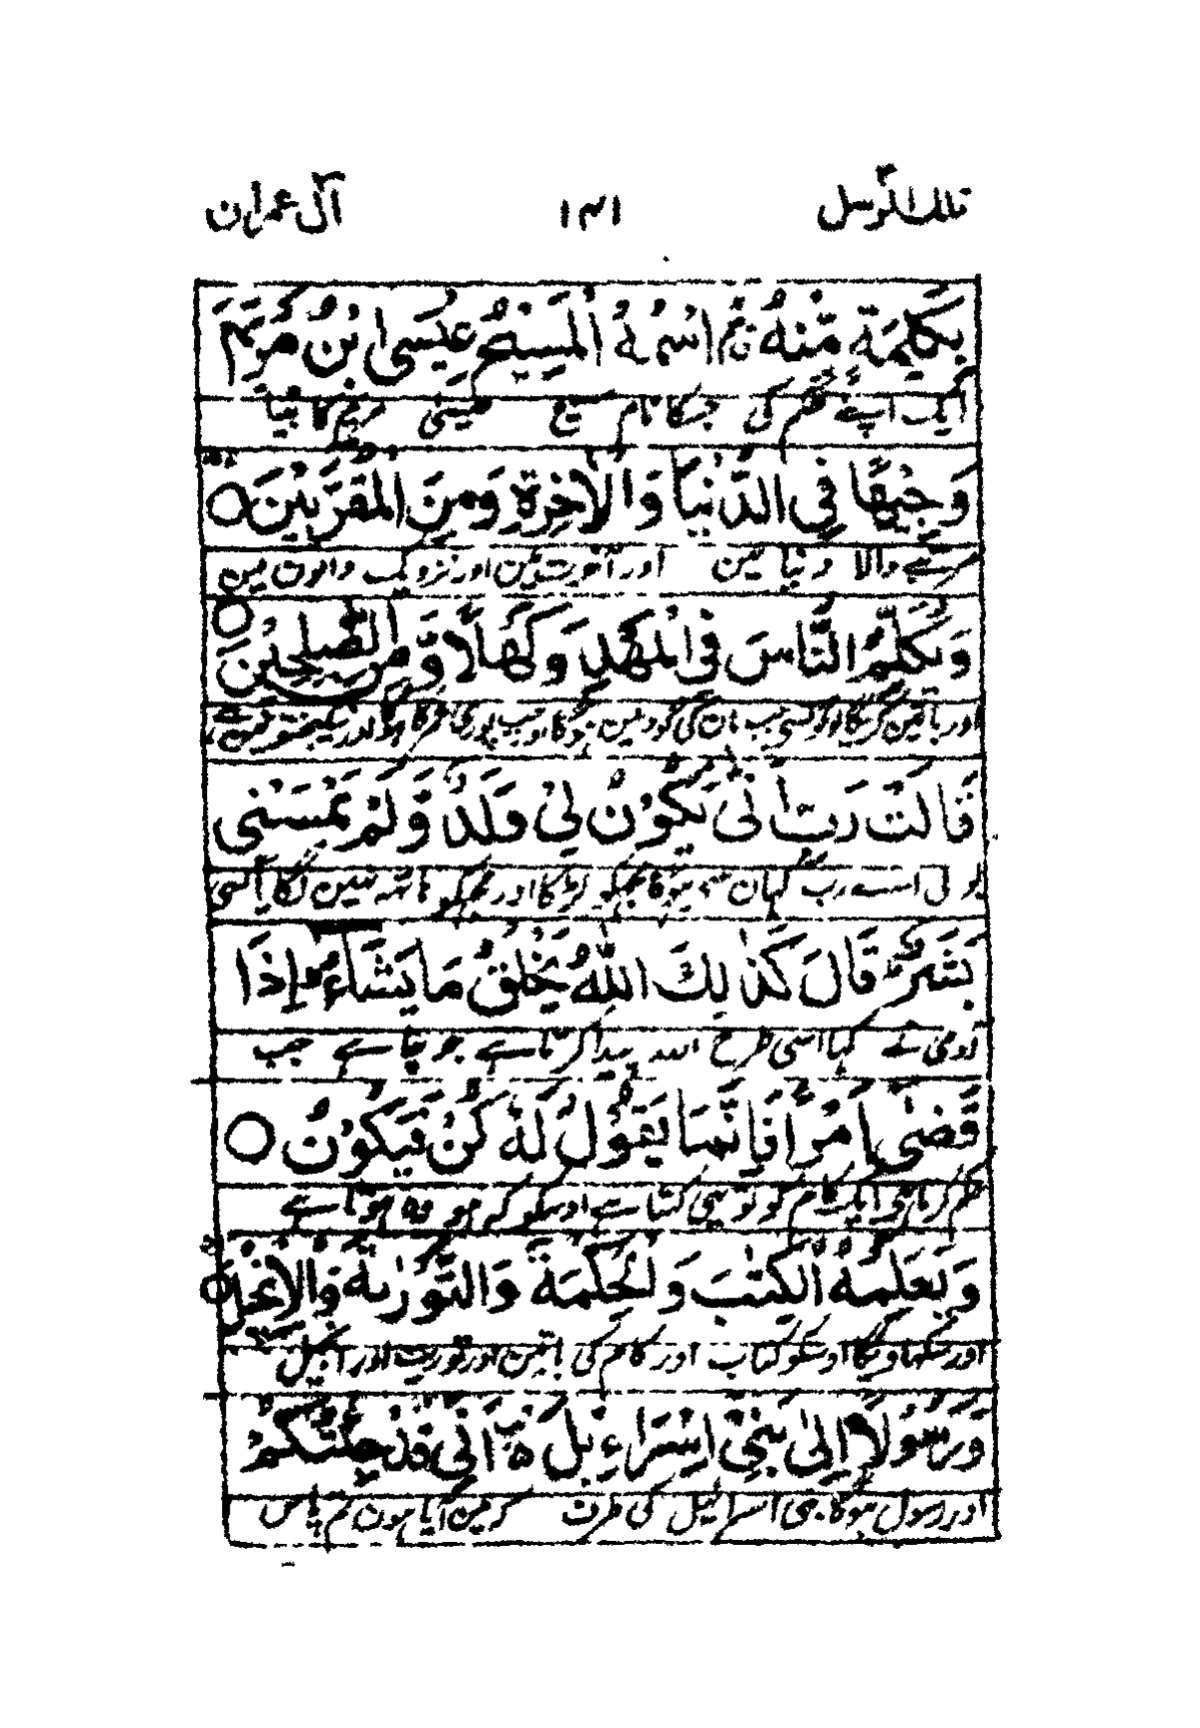 تلك الرسل ١٤١ آل عمران
بِكَلِمَةٍ مِّنْهُ اسْمُهُ الْمَسِيْحُ عِيْسَى ابْنُ مَرْيَمَ
ایک اپنے حکم کی جسکا نام مسیح عیسیٰ مریم کا بیٹا
وَجِيْهًا فِي الدُّنْيَا وَالْاٰخِرَةِ وَمِنَ الْمُقَرَّبِيْنَ
مرتبے والا دنیا مین اور آخرت مین اور نزدیک والون مین
وَيُكَلِّمُ النَّاسَ فِي الْمَهْدِ وَكَهْلًا وَّمِنَ الصّٰلِحِيْنَ
اور باتین کریگا لوگونسے جب مان کی گود مین ہوگا اور جب پوری عمر کا ہوگا اور نیکبختون مین ہے
قَالَتْ رَبِّ اَنّٰى يَكُوْنُ لِيْ وَلَدٌ وَّلَمْ يَمْسَسْنِيْ
بولی اے رب کہان سے ہوگا مجھکو لڑکا اور مجھکو ہاتھ نہین لگایا کسی
بَشَرٌ قَالَ كَذٰلِكِ اللّٰهُ يَخْلُقُ مَا يَشَآءُ اِذَا
آدمی نے کہا اسی طرح اللہ پیدا کرتا ہے جو چاہے جب
قَضٰٓى اَمْرًا فَاِنَّمَا يَقُوْلُ لَهٗ كُنْ فَيَكُوْنُ
حکم کرتا ہے ایک کام کو تو یہی کہتا ہے اوسکو کہ ہو وہ ہوتا ہے
وَيُعَلِّمُهُ الْكِتٰبَ وَالْحِكْمَةَ وَالتَّوْرٰىةَ وَالْاِنْجِيْلَ
اور سکھاویگا اوسکو کتاب اور کام کی باتین اور توریت اور انجیل
وَرَسُوْلًا اِلٰى بَنِيْٓ اِسْرَآءِيْلَ اَنِّيْ قَدْ جِئْتُكُمْ
اور رسول ہوگا بنی اسرائیل کی طرف کہ مین آیا ہون تم پاس